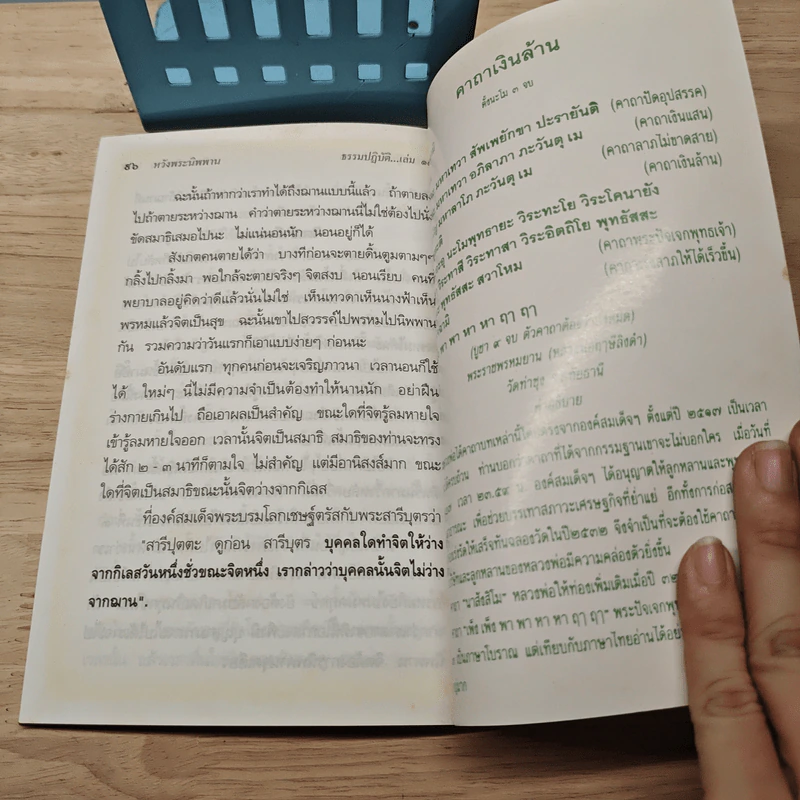 ๕๖ หวังพระนิพพาน
ธรรมปฏิบัติ...เล่ม
ฉะนั้นถ้าหากว่าเราทำได้ถึงฌานแบบนี้แล้ว ถ้าตายลง
ไปถ้าตายระหว่างฌาน คำว่าตายระหว่างฌานนี่ไม่ใช่ต้องไปนั่ง
ขัดสมาธิเสมอไปนะ ไม่แน่นอนนัก นอนอยู่ก็ได้
สังเกตคนตายได้ว่า บางทีก่อนจะตายดิ้นตูมตามๆ
กลิ้งไปกลิ้งมา พอใกล้จะตายจริงๆ จิตสงบ นอนเรียบ คนที่
พยาบาลอยู่คิดว่าดีแล้วนั่นไม่ใช่ เห็นเทวดาเห็นนางฟ้าเห็น
พรหมแล้วจิตเป็นสุข ฉะนั้นเขาไปสวรรค์ไปพรหมไปนิพพาน
กัน รวมความว่าวันแรกก็เอาแบบง่ายๆ ก่อนนะ
อันดับแรก ทุกคนก่อนจะเจริญภาวนา เวลานอนก็ใช้
ได้ ใหม่ๆ นี่ไม่มีความจำเป็นต้องทำให้นานนัก อย่าฝืน
ร่างกายเกินไป ถือเอาผลเป็นสำคัญ ขณะใดที่จิตรู้ลมหายใจ
เข้ารู้ลมหายใจออก เวลานั้นจิตเป็นสมาธิ สมาธิของท่านจะทรง
ได้สัก ๒ - ๓ นาทีก็ตามใจ ไม่สำคัญ แต่มีอานิสงส์มาก ขณะ
ใดที่จิตเป็นสมาธิขณะนั้นจิตว่างจากกิเลส
ที่องค์สมเด็จพระบรมโลกเชษฐ์ตรัสกับพระสารีบุตรว่า
"สารีปุตตะ ดูก่อน สารีบุตร บุคคลใดทำจิตให้ว่าง
จากกิเลสวันหนึ่งชั่วขณะจิตหนึ่ง เรากล่าวว่าบุคคลนั้นจิตไม่ว่าง
จากฌาน".
คาถาเงินล้าน
ตั้งนะโม ๓ จบ
มหาเทวา สัพเพยักขา ปะรายันติ (คาถาปัดอุปสรรค)
มหาเทวา อภิลาภา ภะวันตุ เม (คาถาเงินแสน)
มหาลาโภ ภะวันตุ เม (คาถาลาภไม่ขาดสาย)
(คาถาเงินล้าน)
นะโมพุทธายะ วิระทะโย วิระโคนายัง
วิระทาสี วิระทาสา วิระอิตถิโย พุทธัสสะ
พุทธัสสะ สวาโหม (คาถาพระปัจเจกพุทธเจ้า)
ลาภให้ได้เร็วขึ้น)
พา พา หา หา ฤา ฤา
(บูชา ๙ จบ ตัวคาถาต้อง
พระราชพรหมยาน
วัดท่าซุง
ได้คาถาบทเหล่านี้ จากองค์สมเด็จฯ ตั้งแต่ปี ๒๕๑๗ เป็นเวลา
ท่านบอกว่า คาถาที่ได้จากกรรมฐานเขาจะไม่บอกใคร เมื่อวันที่
เวลา ๒๓.๕๙ น. องค์สมเด็จฯ ได้อนุญาตให้ลูกหลานและ
เพื่อช่วยบรรเทาสภาวะเศรษฐกิจที่ย่ำแย่ อีกทั้งการ
ให้เสร็จทันฉลองวัดในปี๒๕๓๒ จึงจำเป็นที่จะต้องใช้คาถา
และลูกหลานของหลวงพ่อมีความคล่องตัวยิ่งขึ้น
"นาสังสิโม" หลวงพ่อให้ท่องเพิ่มเติมเมื่อปี
"เพ็ง เพ็ง พา พา หา หา ฤา ฤา" พระปัจเจก
เป็นภาษาโบราณ แต่เทียบกับภาษาไทยอ่านได้